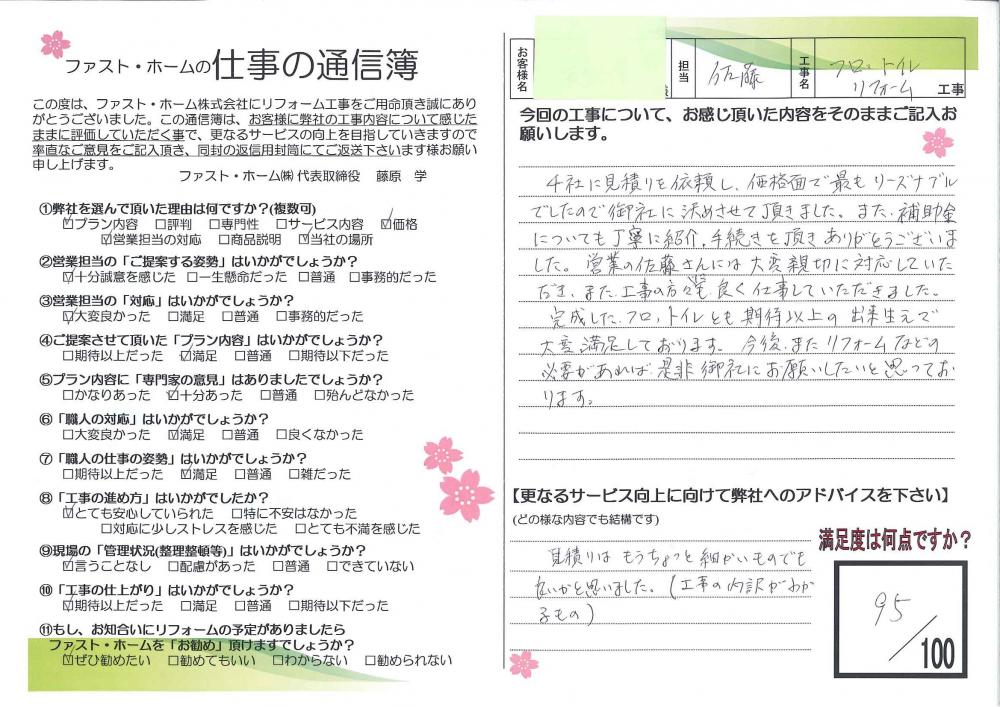 ファスト・ホームの仕事の通信簿
この度は、ファスト・ホーム株式会社にリフォーム工事をご用命頂き誠にあり
がとうございました。この通信簿は、お客様に弊社の工事内容について感じた
ままに評価していただく事で、更なるサービスの向上を目指していきますので
率直なご意見をご記入頂き、同封の返信用封筒にてご返送下さいます様お願い
申し上げます。
ファスト・ホーム㈱ 代表取締役 藤原 学
①弊社を選んで頂いた理由は何ですか？(複数可)
☑プラン内容 □評判 □専門性 □サービス内容 ☑価格
☑営業担当の対応 □商品説明 ☑当社の場所
②営業担当の「ご提案する姿勢」はいかがでしょうか？
☑十分誠意を感じた □一生懸命だった □普通 □事務的だった
③営業担当の「対応」はいかがでしょうか？
☑大変良かった □満足 □普通 □事務的だった
④ご提案させて頂いた「プラン内容」はいかがでしょうか？
□期待以上だった ☑満足 □普通 □期待以下だった
⑤プラン内容に「専門家の意見」はありましたでしょうか？
□かなりあった ☑十分あった □普通 □殆んどなかった
⑥「職人の対応」はいかがでしょうか？
□大変良かった ☑満足 □普通 □良くなかった
⑦「職人の仕事の姿勢」はいかがでしょうか？
□期待以上だった ☑満足 □普通 □雑だった
⑧「工事の進め方」はいかがでしたか？
☑とても安心していられた □特に不安はなかった
□対応に少しストレスを感じた □とても不満を感じた
⑨現場の「管理状況(整理整頓等)」はいかがでしょうか？
☑言うことなし □配慮があった □普通 □できていない
⑩「工事の仕上がり」はいかがでしょうか？
☑期待以上だった □満足 □普通 □期待以下だった
⑪もし、お知合いにリフォームの予定がありましたら
ファスト・ホームを「お勧め」頂けますでしょうか？
☑ぜひ勧めたい □勧めてもいい □わからない □勧められない
お客様名 様 担当 佐藤 工事名 フロ・トイレ
リフォーム 工事
今回の工事について、お感じ頂いた内容をそのままご記入お
願いします。
4社に見積りを依頼し、価格面で最もリーズナブル
でしたので御社に決めさせて頂きました。また、補助金
についても丁寧に紹介、手続きを頂きありがとうございま
した。営業の佐藤さんには大変親切に対応していた
だき、また、工事の方々も良く仕事していただきました。
完成した、フロ、トイレとも期待以上の出来ばえで
大変満足しております。今後、またリフォームなどの
必要があれば、是非御社にお願いしたいと思ってお
ります。
【更なるサービス向上に向けて弊社へのアドバイスを下さい】
(どの様な内容でも結構です)
見積りはもうちょっと細かいものでも
良いかと思いました。(工事の内訳がわか
るもの)
満足度は何点ですか？
95/100